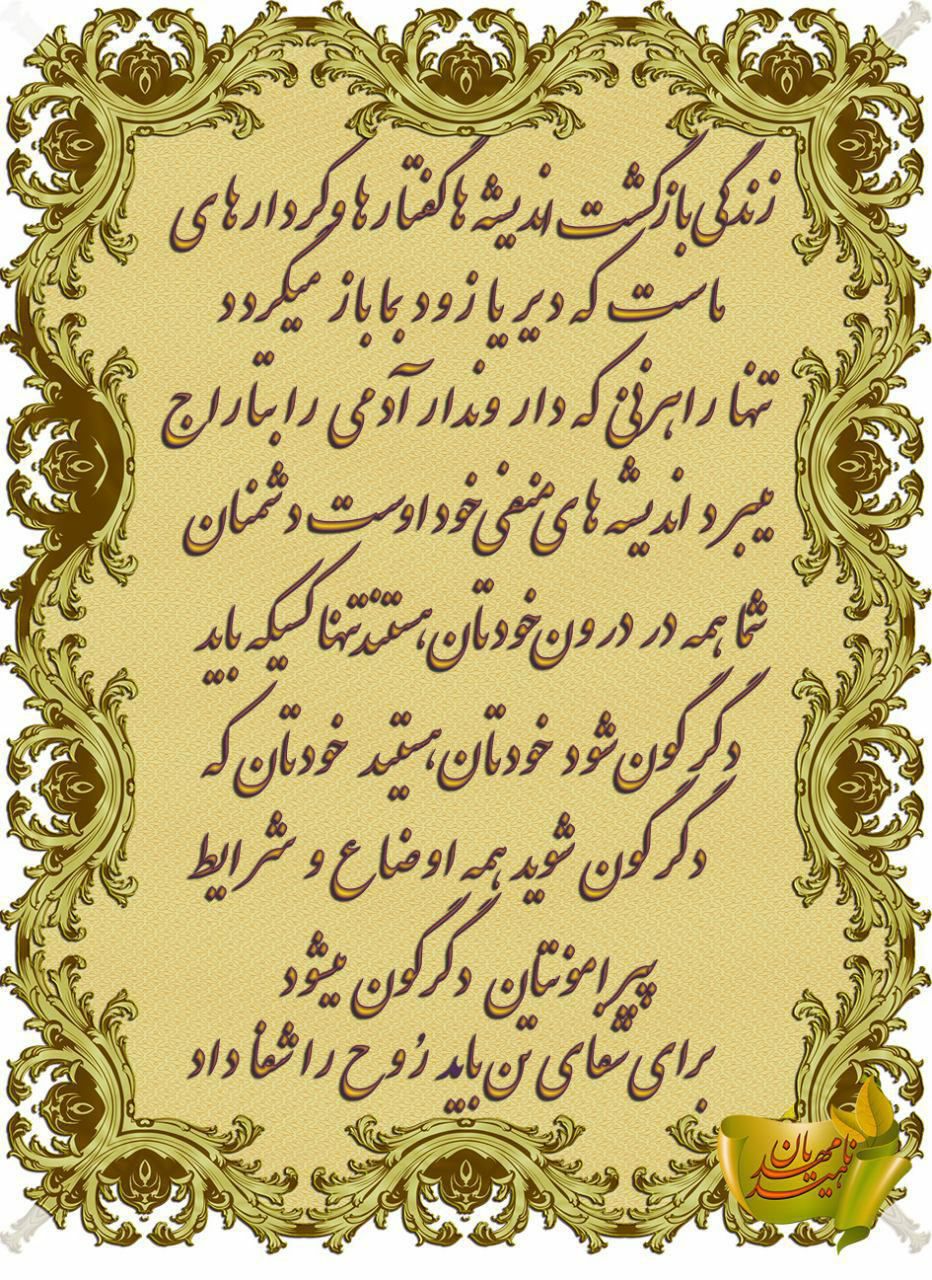 زندگی بازگشت اندیشه ها گفتارها و کردارهای
ماست که دیر یا زود بما باز میگردد
تنها راهزنی که دار و ندار آدمی را بتاراج
میبرد اندیشه های منفی خود اوست دشمنان
شما همه در درون خودتان هستند تنها کسیکه باید
دگرگون شود خودتان هستید خودتان که
دگرگون شوید همه اوضاع و شرایط
پیرامونتان دگرگون میشود
برای شفای تن باید رُوح را شفا داد
ناهید مهدیان